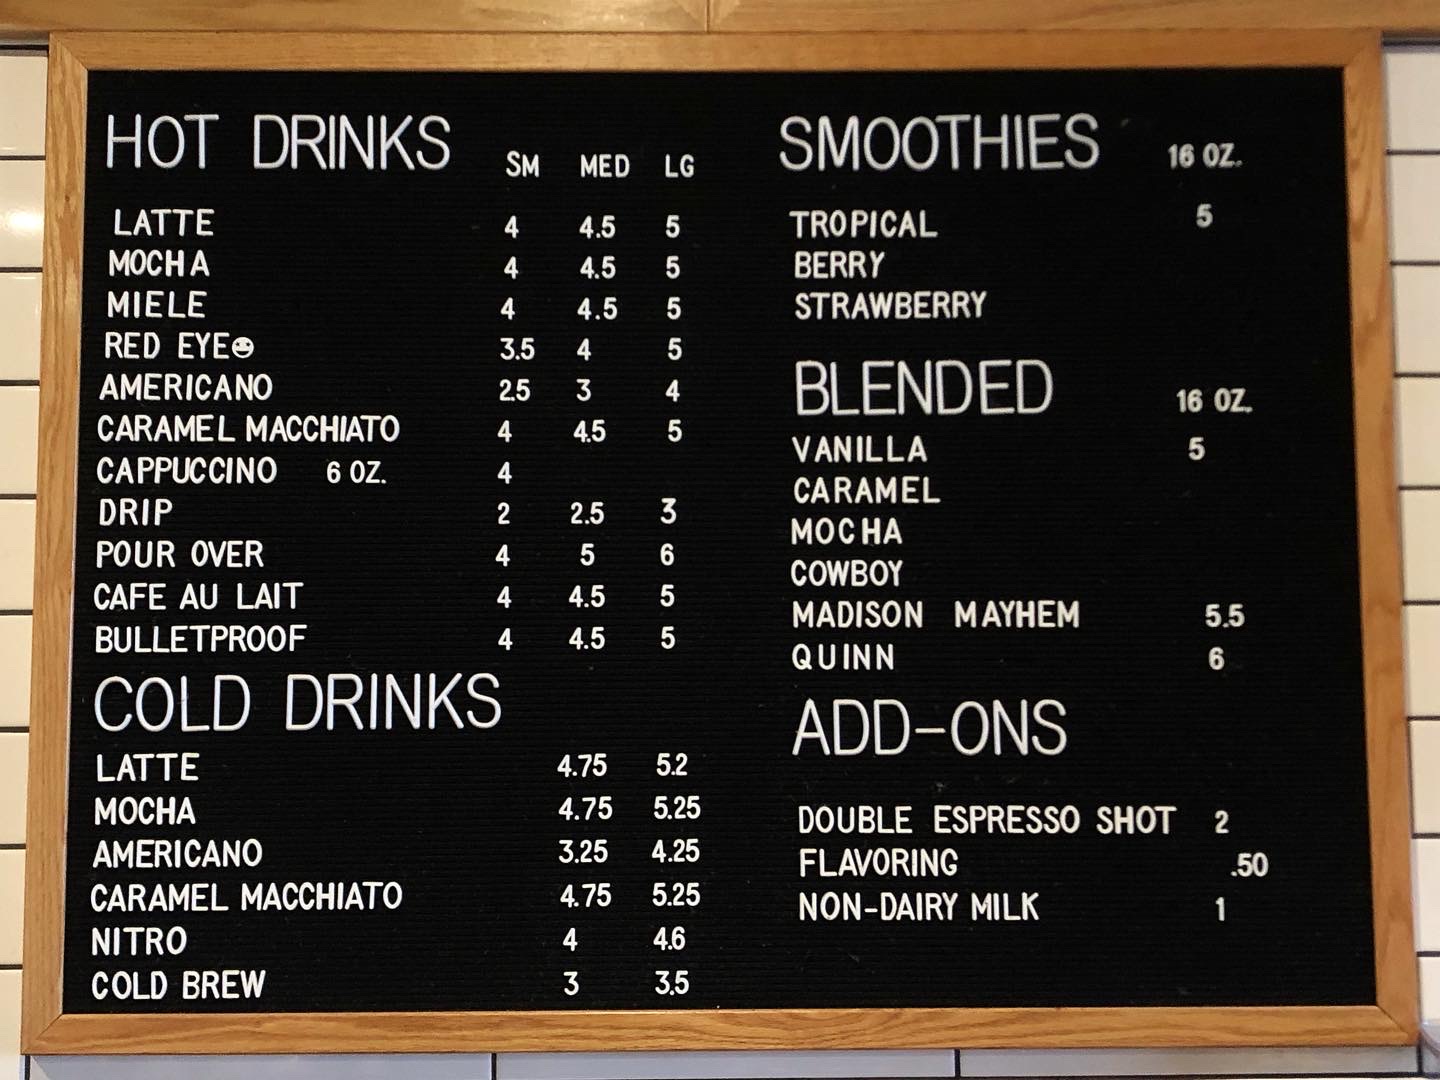 HOT DRINKS SM MED LG
LATTE 4 4.5 5
MOCHA 4 4.5 5
MIELE 4 4.5 5
RED EYE 3.5 4 5
AMERICANO 2.5 3 4
CARAMEL MACCHIATO 4 4.5 5
CAPPUCCINO 6 OZ. 4
DRIP 2 2.5 3
POUR OVER 4 5 6
CAFE AU LAIT 4 4.5 5
BULLETPROOF 4 4.5 5
COLD DRINKS
LATTE 4.75 5.2
MOCHA 4.75 5.25
AMERICANO 3.25 4.25
CARAMEL MACCHIATO 4.75 5.25
NITRO 4 4.6
COLD BREW 3 3.5
SMOOTHIES 16 OZ.
TROPICAL 5
BERRY
STRAWBERRY
BLENDED 16 OZ.
VANILLA 5
CARAMEL
MOCHA
COWBOY
MADISON MAYHEM 5.5
QUINN 6
ADD-ONS
DOUBLE ESPRESSO SHOT 2
FLAVORING .50
NON-DAIRY MILK 1